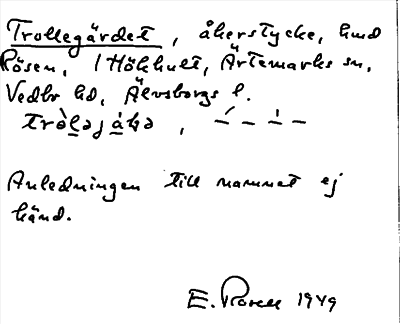 Trollegärdet, åkerstycke, hmd
Rösen, 1 Hökhult, Ärtemarks sn,
Vedbo hd, Älvsborgs l.
Anledningen till namnet ej
känd.
E. Rosell 1949